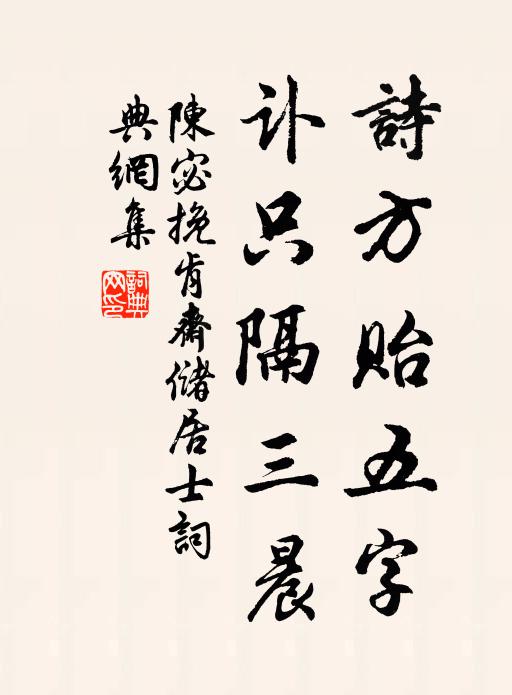 詩方貽五字
訃只隔三晨
陳宓挽肯齋儲居士詞
典網集
詞典網印